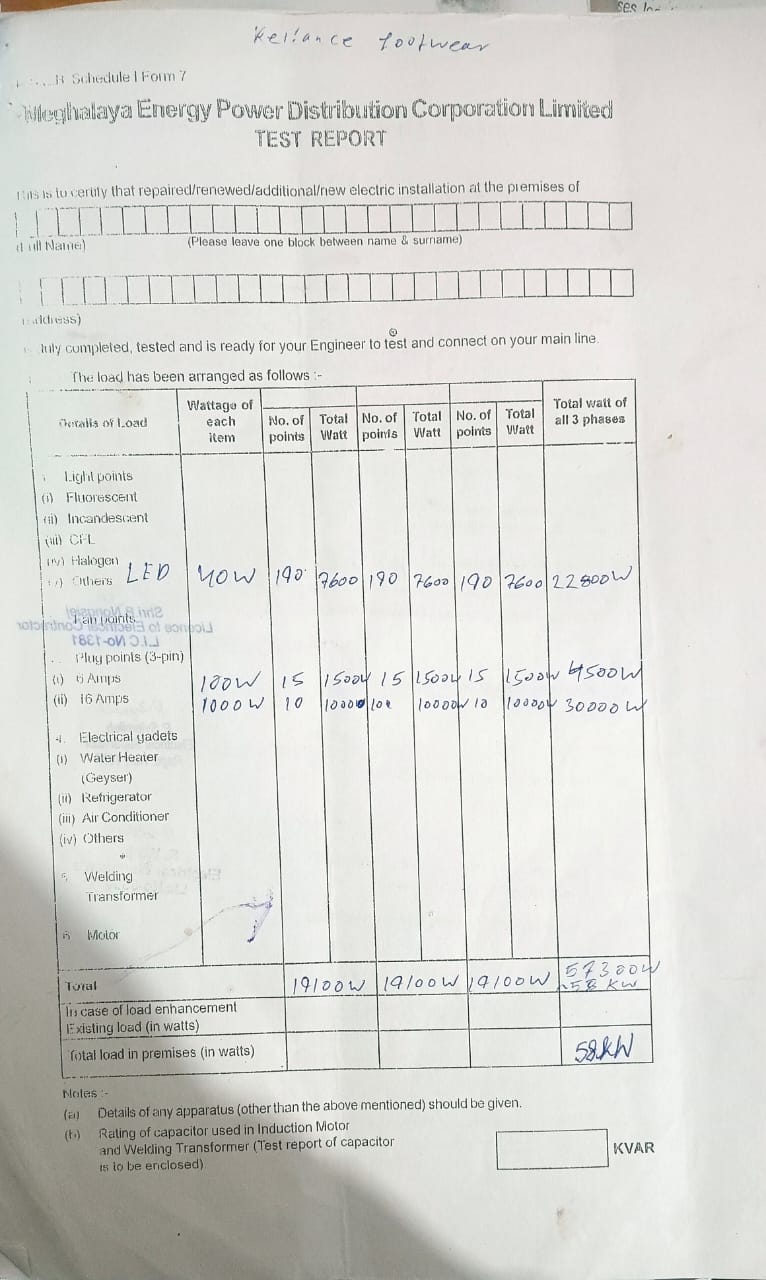 Reliance footwear
B Schedule I Form 7
Meghalaya Energy Power Distribution Corporation Limited
TEST REPORT
This is to certify that repaired/renewed/additional/new electric installation at the premises of
(Full Name) (Please leave one block between name & surname)
(Address)
duly completed, tested and is ready for your Engineer to test and connect on your main line.
The load has been arranged as follows :-
Details of Load Wattage of each item No. of points Total Watt No. of points Total Watt No. of points Total Watt Total watt of all 3 phases
Light points
(i) Fluorescent
(ii) Incandescent
(iii) CFL
(iv) Halogen
(v) Others LED 40W 190 7600 190 7600 190 7600 22800W
Fan points
LIC No-1381
Plug points (3-pin)
(i) 6 Amps 100W 15 1500W 15 1500W 15 1500W 4500W
(ii) 16 Amps 1000W 10 10000 10 10000W 10 10000W 30000W
4. Electrical gadets
(i) Water Heater
(Geyser)
(ii) Refrigerator
(iii) Air Conditioner
(iv) Others
5. Welding
Transformer
6 Motor
Total 19100W 19100W 19100W 57300W
58 KW
In case of load enhancement
Existing load (in watts)
Total load in premises (in watts) 58KW
Notes :-
(a) Details of any apparatus (other than the above mentioned) should be given.
(b) Rating of capacitor used in Induction Motor
and Welding Transformer (Test report of capacitor
is to be enclosed) KVAR